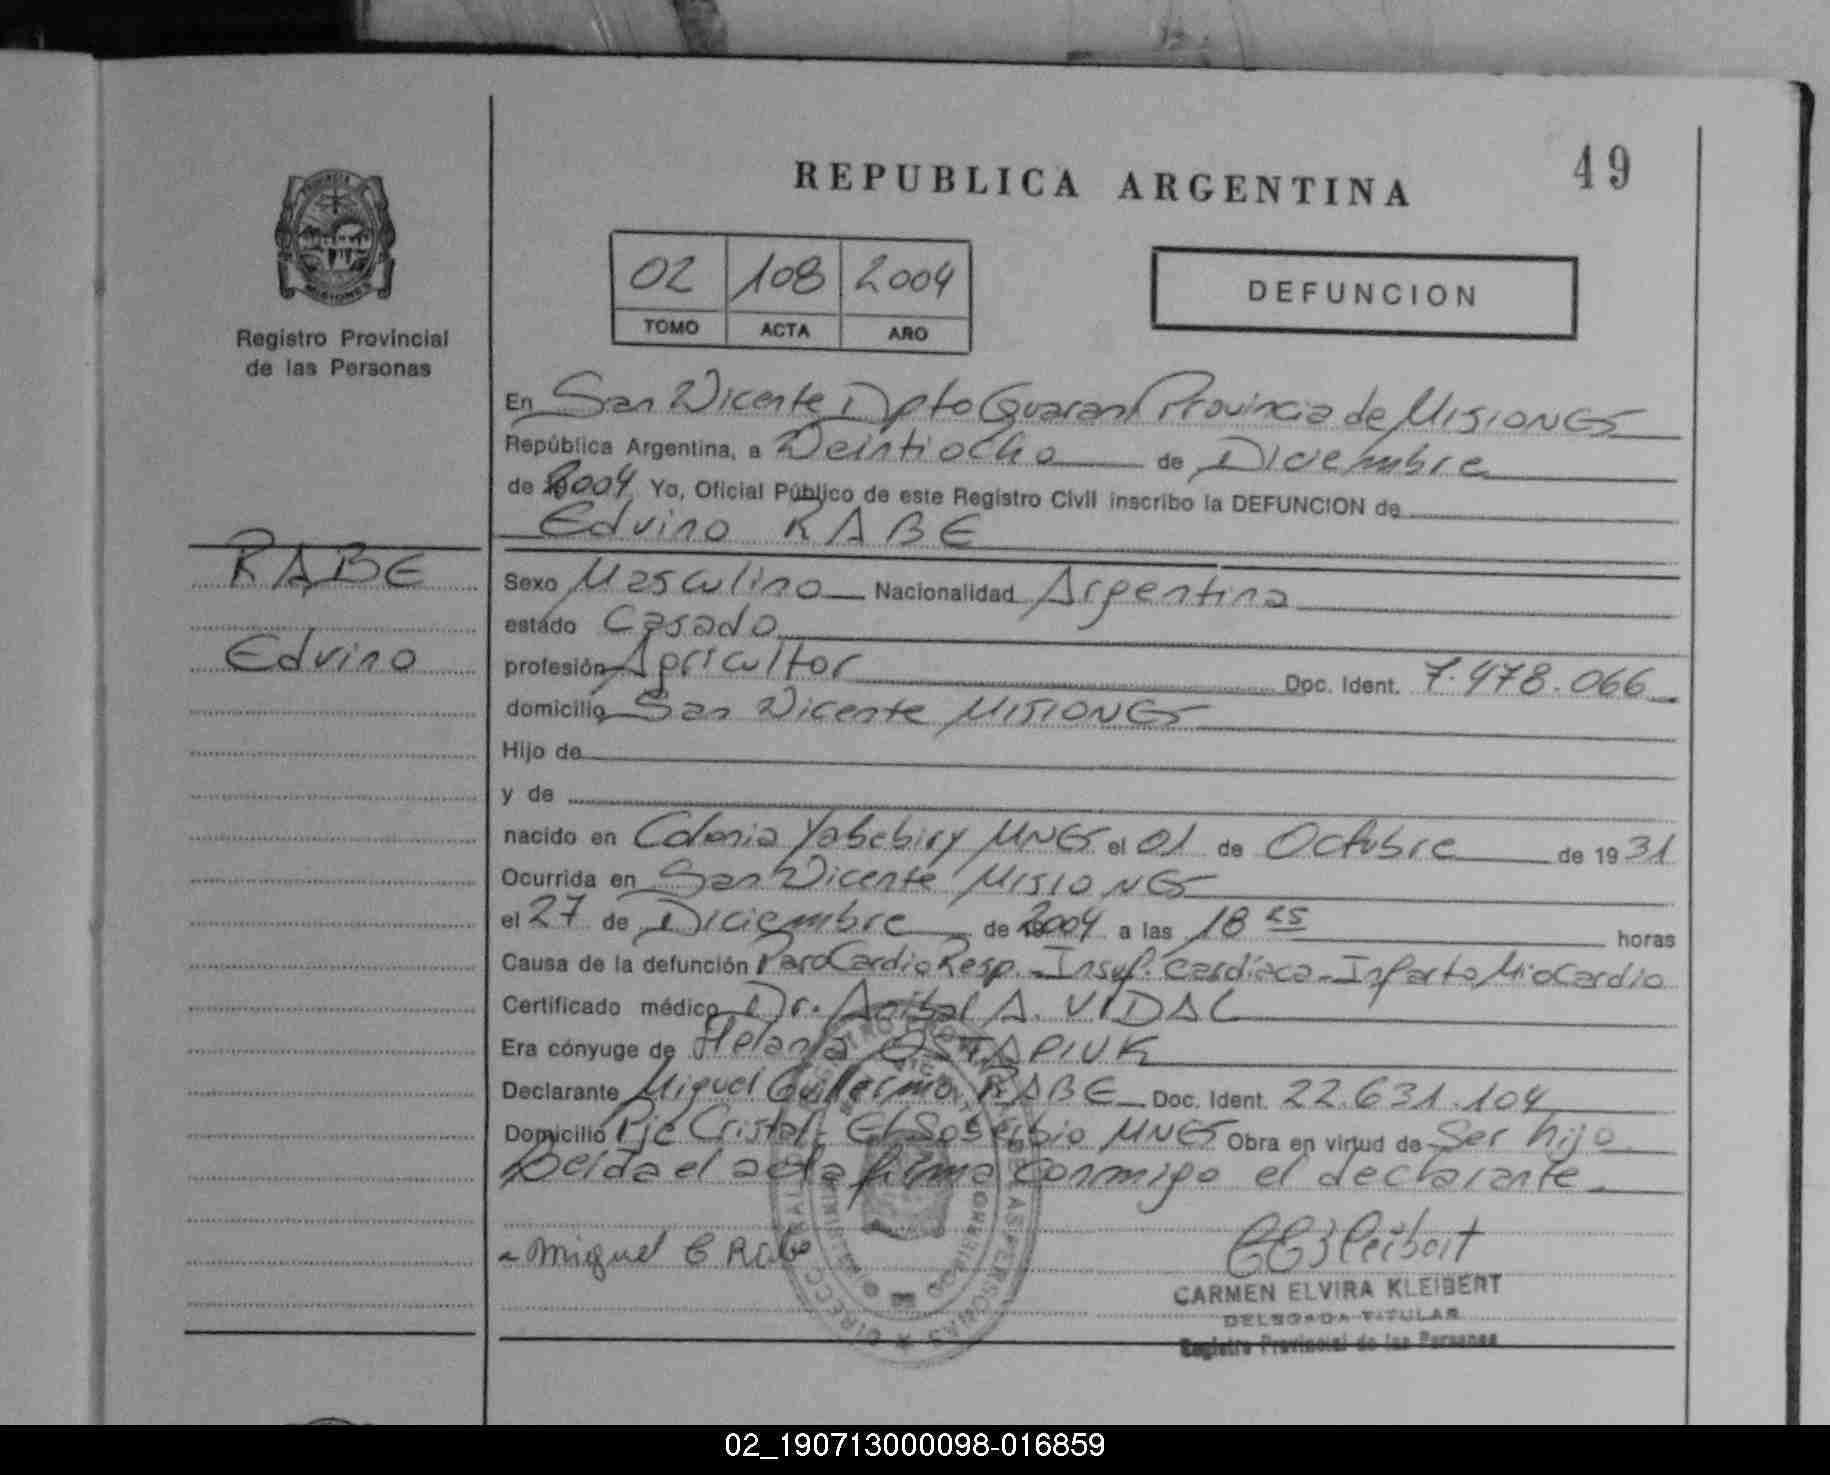 REPUBLICA ARGENTINA
49
PROVINCIA
MISIONES
Registro Provincial
de las Personas
02 108 2004
TOMO ACTA AÑO
DEFUNCION
En San Vicente Dpto Guarani Provincia de MISIONES
República Argentina, a Veintiocho de Diciembre
de 2004 Yo, Oficial Público de este Registro Civil inscribo la DEFUNCION de
Edvino RABE
RABE
Edvino
Sexo Masculino Nacionalidad Argentina
estado Casado
profesión Agricultor Doc. Ident. 7.478.066
domicilio San Vicente MISIONES
Hijo de
y de
nacido en Colonia Yabebiry MNES el 01 de Octubre de 1931
Ocurrida en San Vicente MISIONES
el 27 de Diciembre de 2004 a las 18 horas
Causa de la defunción ParoCardioResp.-Insuf. Cardíaca-Infarto Miocardio
Certificado médico Dr. Anibal A. VIDAL
Era cónyuge de Helania OSTAPIUK
Declarante Miguel Guillermo RABE Doc. Ident. 22.631.104
Domicilio Pje Cristal- El Soberbio MNES Obra en virtud de Ser hijo
Leida el acta firma conmigo el declarante
Miguel G Rabe
CARMEN ELVIRA KLEIBERT
DELEGADA TITULAR
Registro Provincial de las Personas
02_190713000098-016859